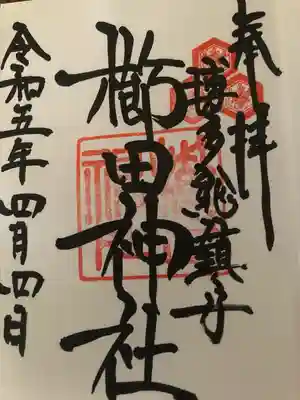 奉拝
博多総鎮守
櫛田神社
令和五年四月四日